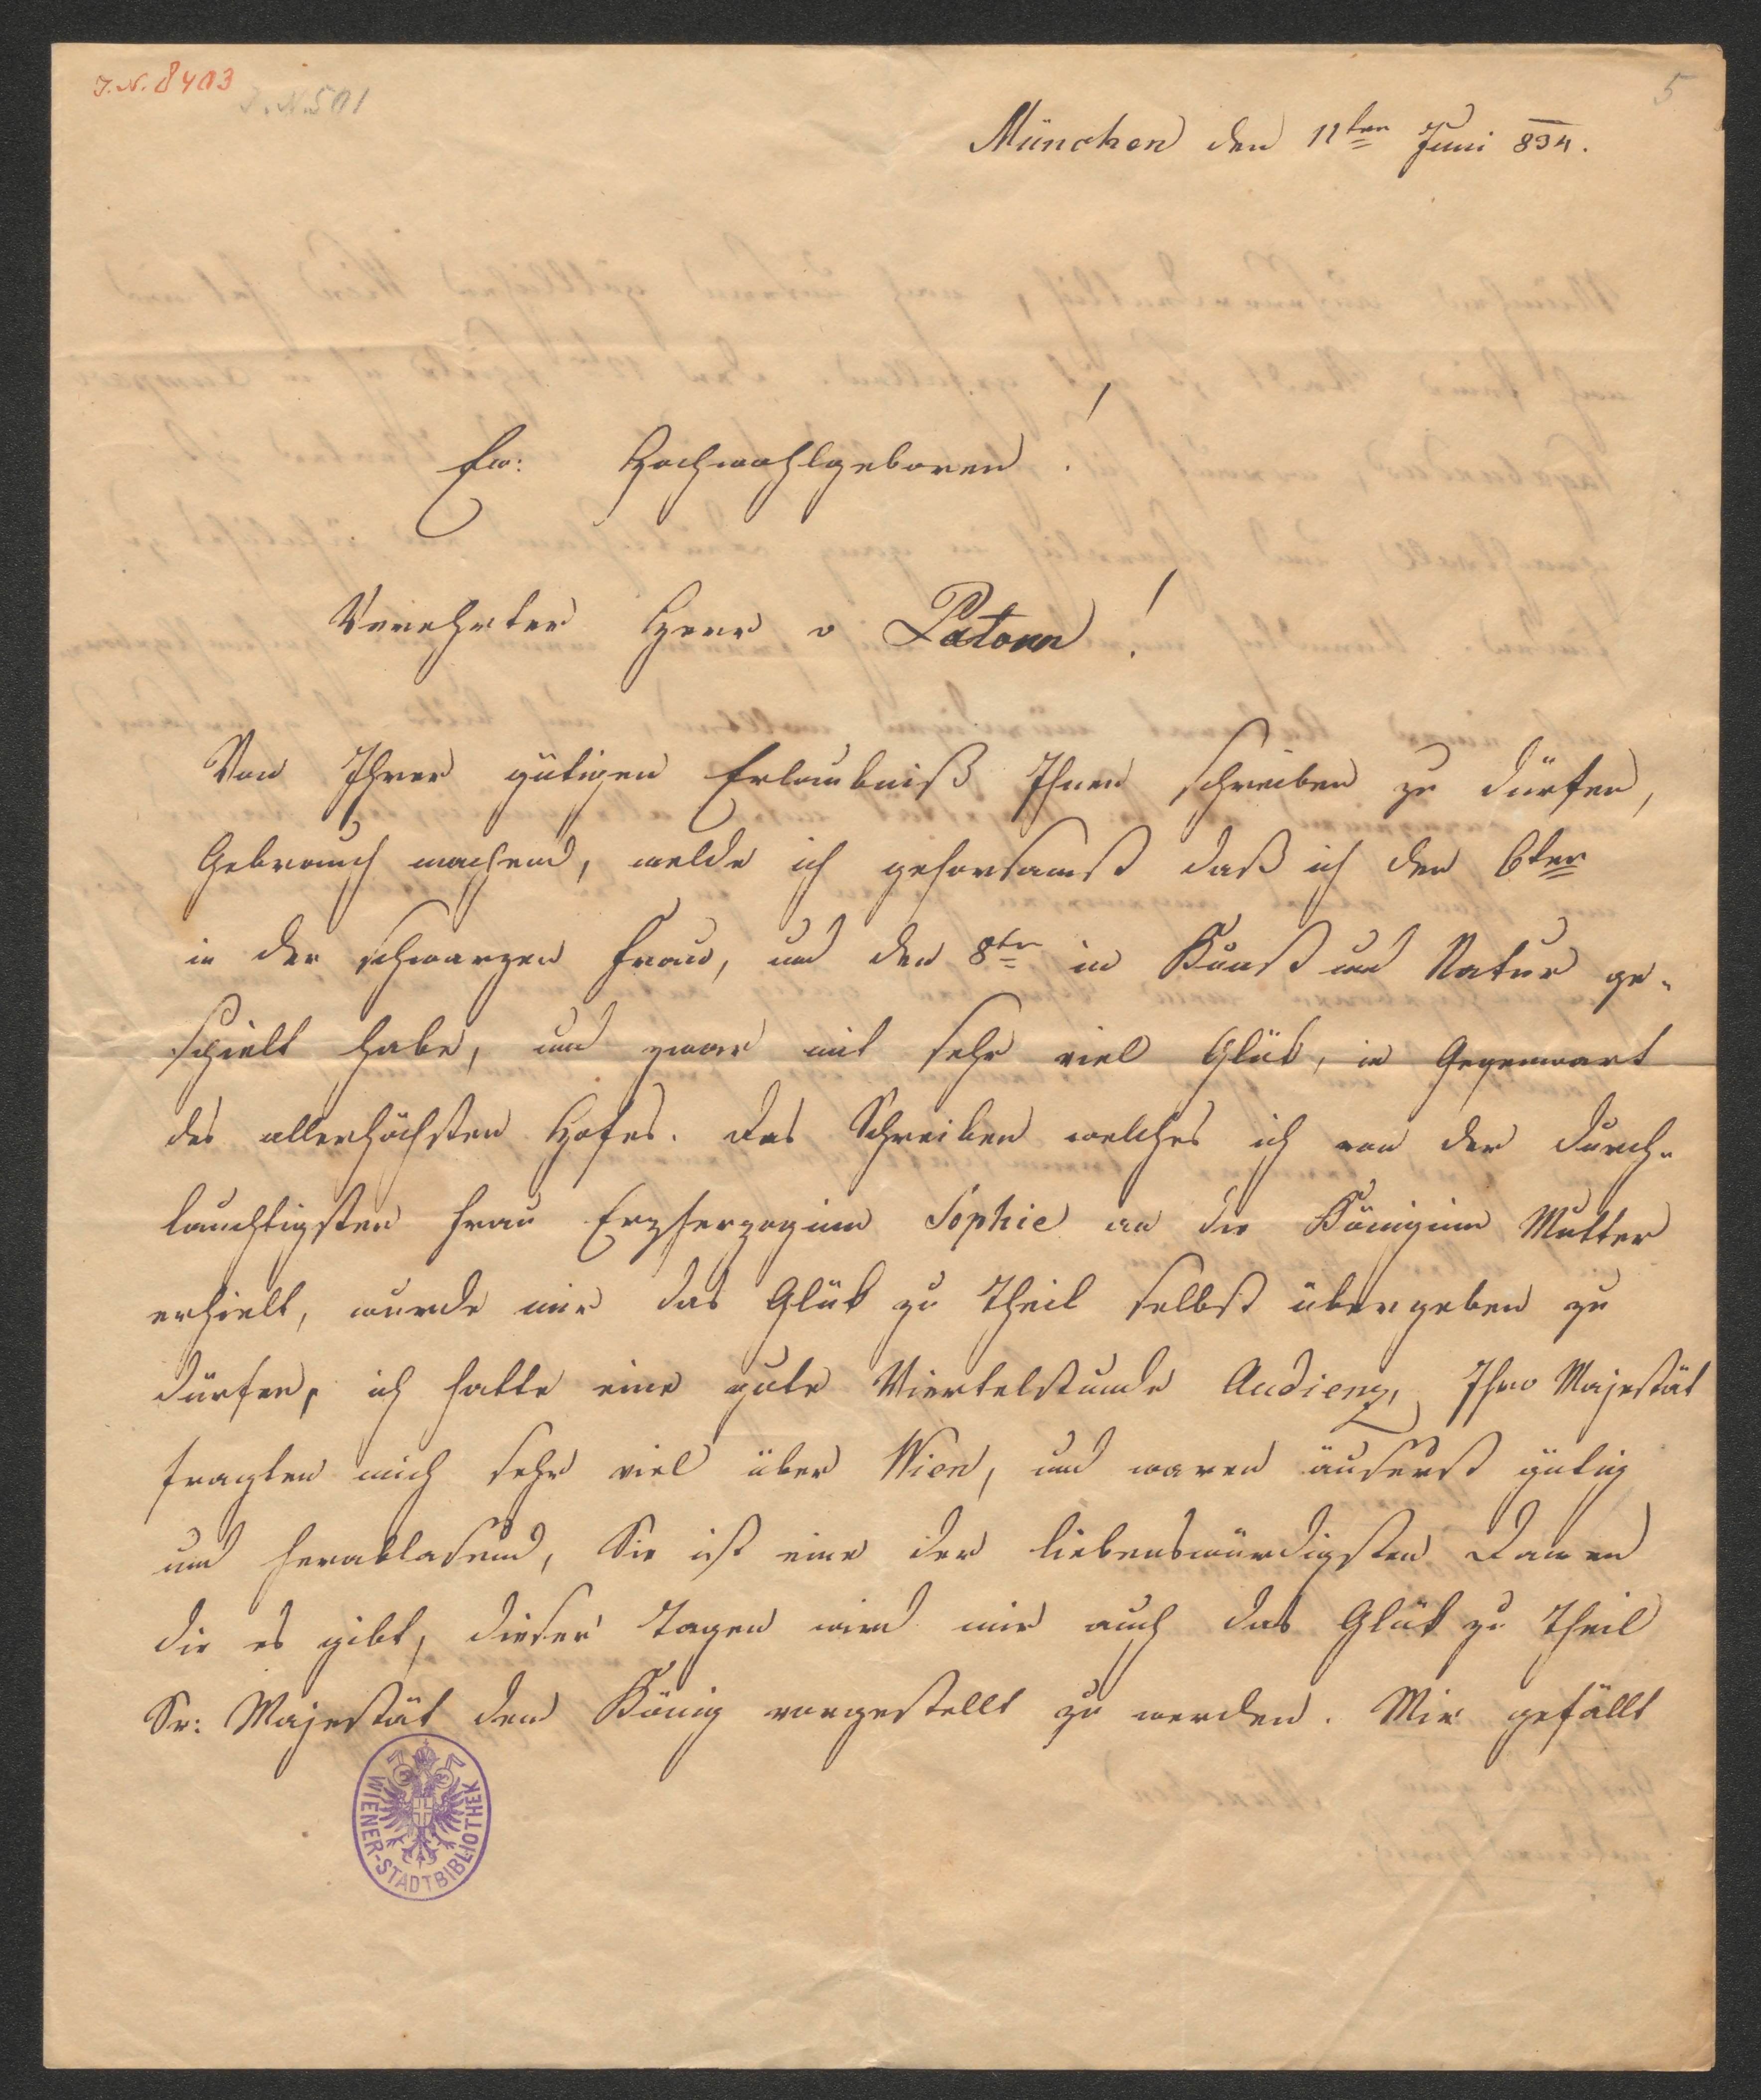 J.N. 8403
J.N. 501
5
München den 11ten Juni 834.
Ew: Hochwohlgeboren!
Verehrter Herr v Patonn!
Von Ihrer gütigen Erlaubniß Ihnen schreiben zu dürfen,
Gebrauch machend, melde ich gehorsamst daß ich den 6ten
in der schwarzen Frau, und den 8ten in Kunst und Natur ge-
spielt habe, und zwar mit sehr viel Glük, in Gegenwart
des allerhöchsten Hofes. Das Schreiben welches ich von der durch-
lauchtigsten Frau Erzherzoginn Sophie an die Königinn Mutter
erhielt, wurde mir das Glük zu Theil selbst übergeben zu
dürfen, ich hatte eine gute Viertelstunde Audienz, Ihro Majestät
fragten mich sehr viel über Wien, und waren äuserst gütig
und herablasend, Sie ist eine der liebenswürdigsten Damen
die es gibt, dieser Tagen wird mir auch das Glük zu Theil
Sr: Majestät dem König vorgestellt zu werden. Mir gefällt
WIENER-STADTBIBLIOTHEK